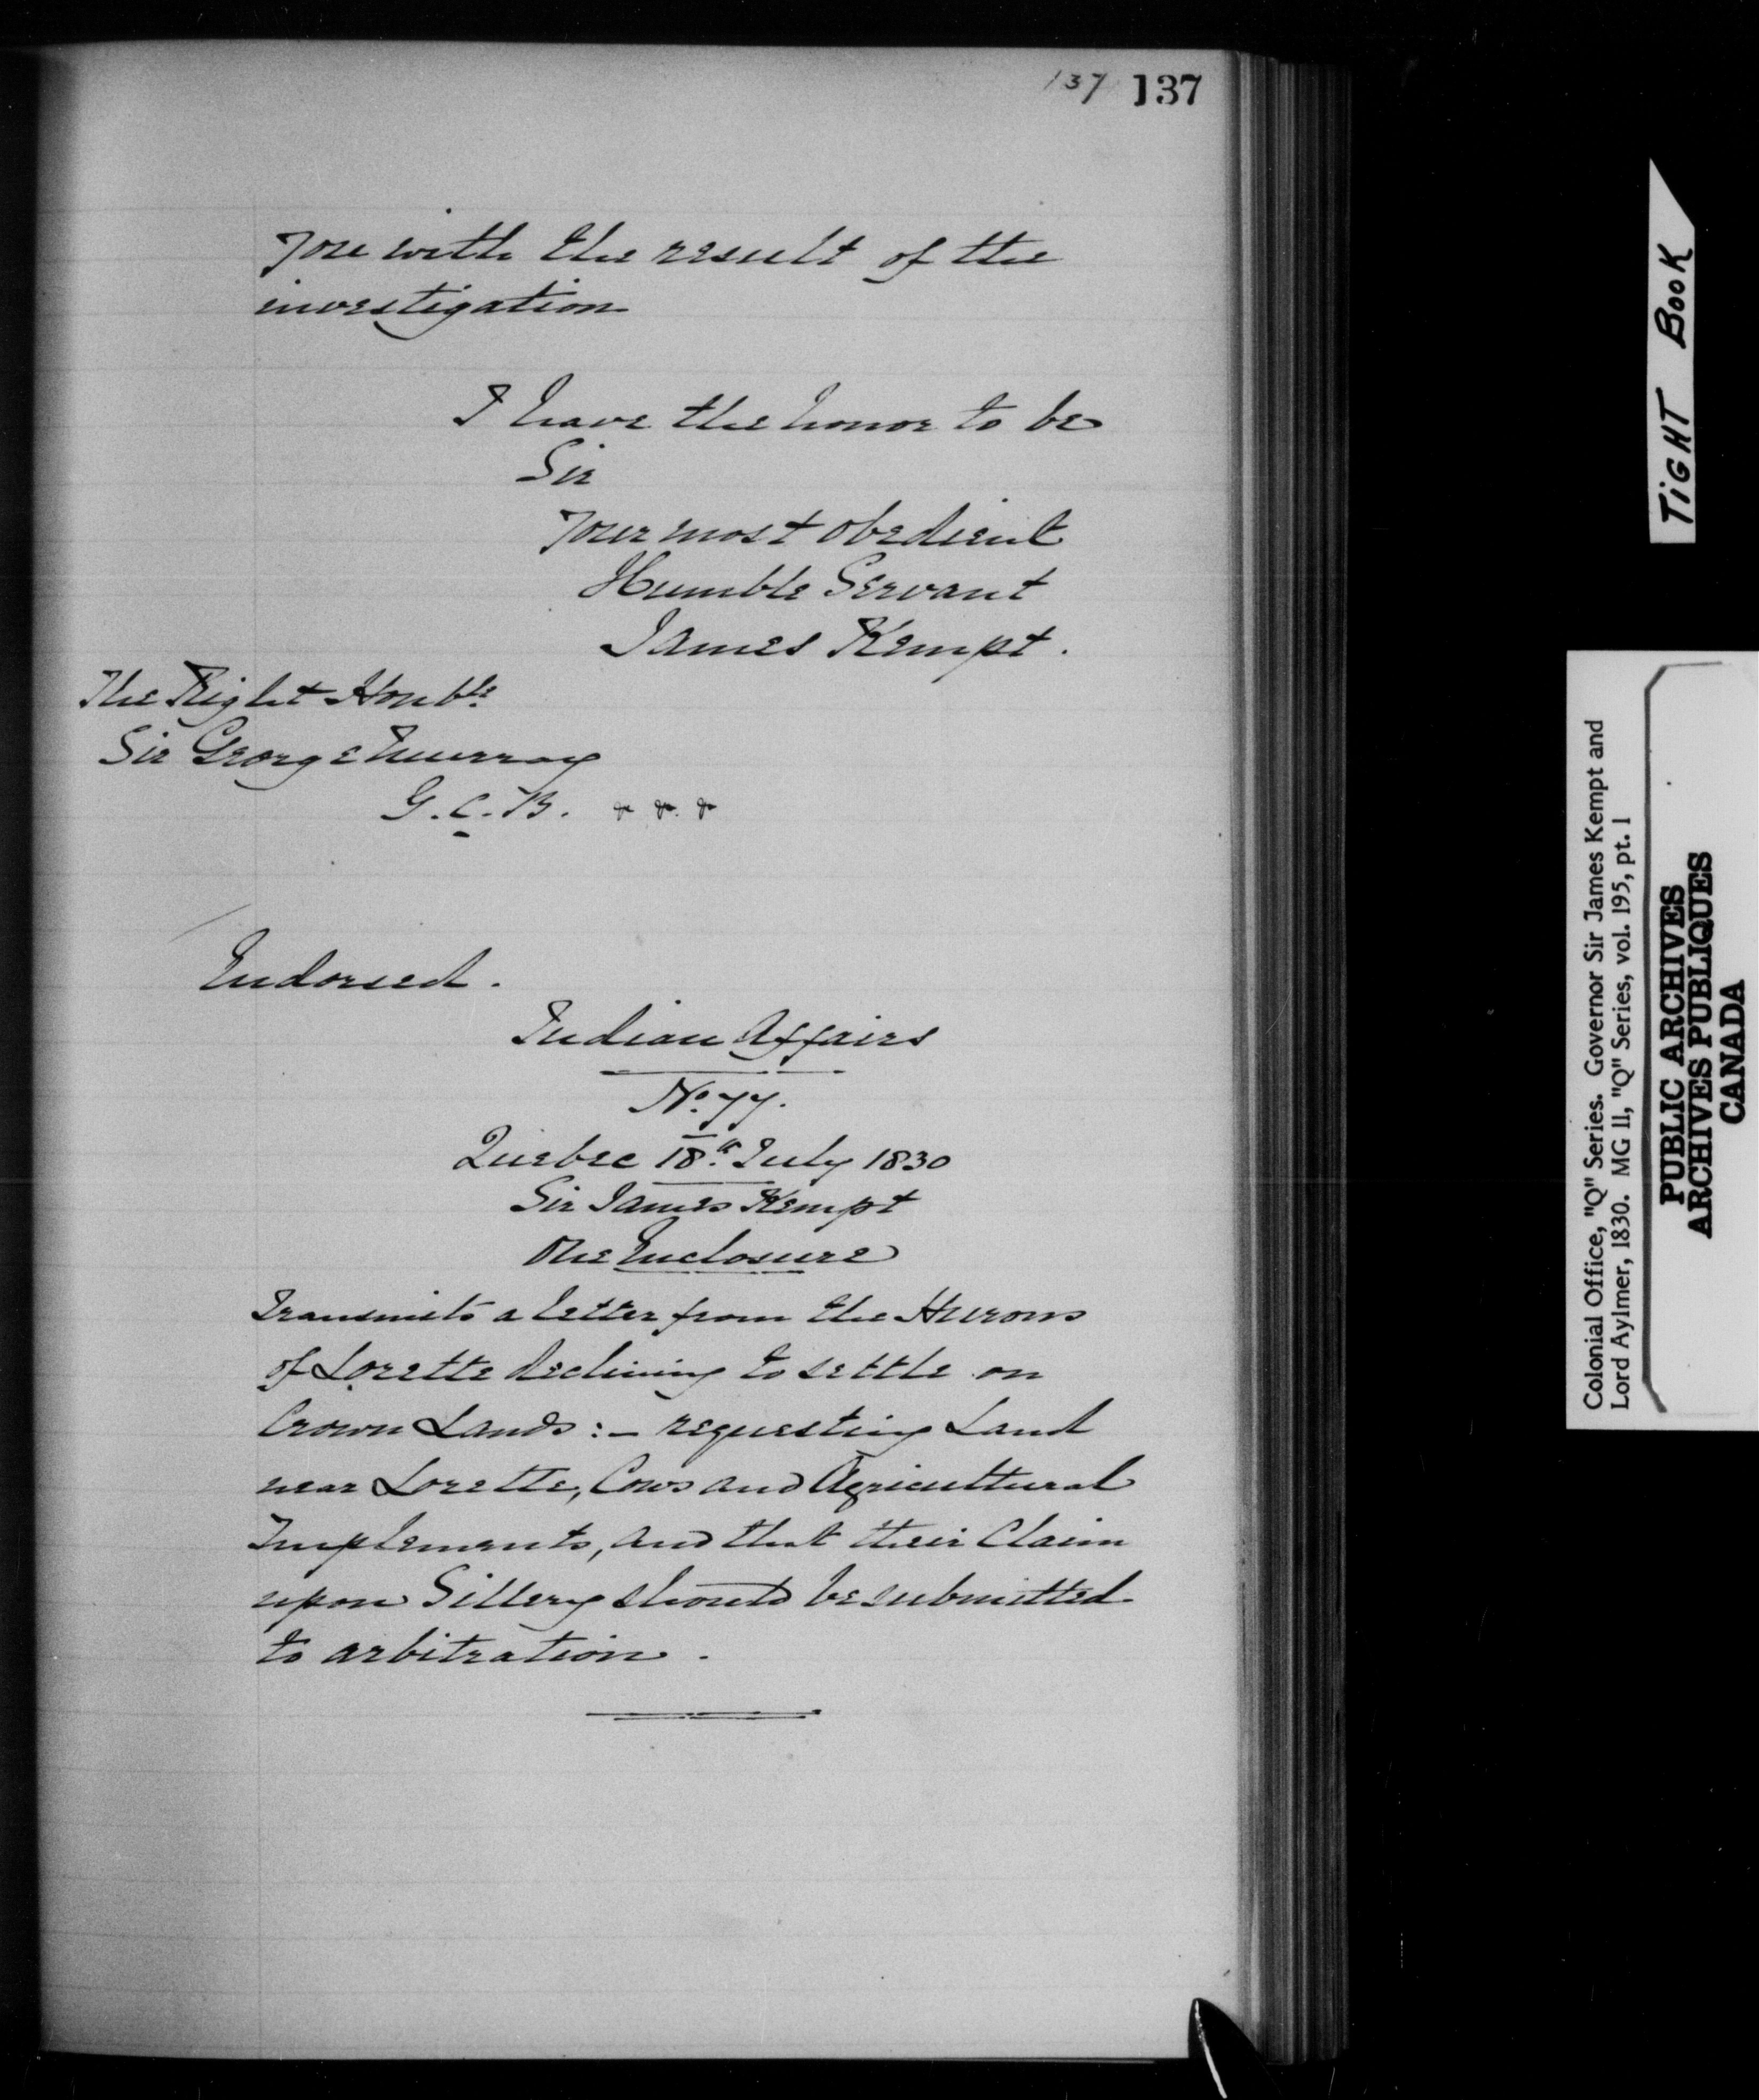 137 137
You with the result of the
investigation
I have the honor to be
Sir
Your most obedient
Humble Servant
James Kempt.
The Right Honble
Sir George Murray
G.C.B. &c &c &c
Endorsed.
Indian Affairs
No. 77.
Quebec 18th July 1830
Sir James Kempt
One Enclosure
Transmits a letter from the Hurons
of Lorette declining to settle on
Crown Lands:- requesting Land
near Lorette, Cows and Agricultural
Implements, and that their Claim
upon Sillery should be submitted
to arbitration.
TIGHT BOOK
Colonial Office, "Q" Series. Governor Sir James Kempt and
Lord Aylmer, 1830. MG 11, "Q" Series, vol. 195, pt. 1
PUBLIC ARCHIVES
ARCHIVES PUBLIQUES
CANADA